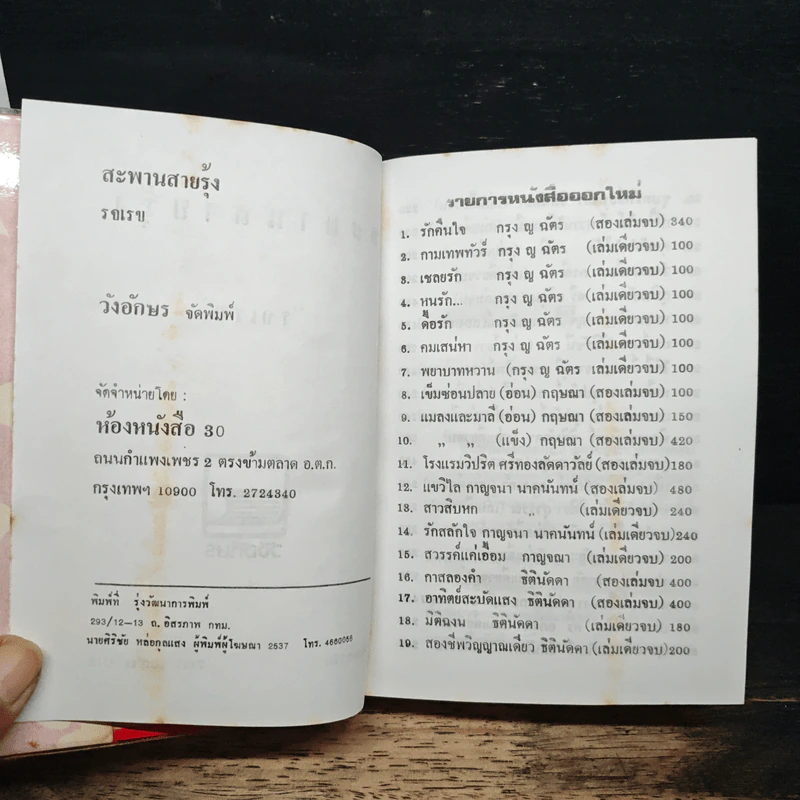 สะพานสายรุ้ง
รจเรข
วังอักษร จัดพิมพ์
จัดจำหน่ายโดย :
ห้องหนังสือ 30
ถนนกำแพงเพชร 2 ตรงข้ามตลาด อ.ต.ก.
กรุงเทพฯ 10900 โทร. 2724340
พิมพ์ที่ รุ่งวัฒนาการพิมพ์
293/12-13 ถ.อิสรภาพ กทม.
นายศิริชัย หล่อกุลแสง ผู้พิมพ์ผู้โฆษณา 2537 โทร. 4660058
รายการหนังสือออกใหม่
1. รักคืนใจ กรุง ญ ฉัตร (สองเล่มจบ) 340
2. กามเทพทัวร์ กรุง ญ ฉัตร (เล่มเดียวจบ) 100
3. เชลยรัก กรุง ญ ฉัตร (เล่มเดียวจบ) 100
4. หนรัก... กรุง ญ ฉัตร (เล่มเดียวจบ) 100
5. ดื้อรัก กรุง ญ ฉัตร (เล่มเดียวจบ) 100
6. คมเสน่หา กรุง ญ ฉัตร (เล่มเดียวจบ) 100
7. พยาบาทหวาน (กรุง ญ ฉัตร เล่มเดียวจบ) 100
8. เข็มซ่อนปลาย (อ่อน) กฤษณา (สองเล่มจบ) 100
9. แมลงและมาลี (อ่อน) กฤษณา (สองเล่มจบ) 150
10. ,, ,, (แข็ง) กฤษณา (สองเล่มจบ) 420
11. โรงแรมวิปริต ศรีทองลัดดาวัลย์ (สองเล่มจบ) 180
12. แขวิไล กาญจนา นาคนันทน์ (สองเล่มจบ) 480
13. สาวสิบหก ,, (เล่มเดียวจบ) 240
14. รักสลักใจ กาญจนา นาคนันทน์ (เล่มเดียวจบ) 240
15. สวรรค์แค่เอื้อม กาญจณา (เล่มเดียวจบ) 200
16. กาสลองคำ ธิตินัดดา (สองเล่มจบ 400
17. อาทิตย์สะบัดแสง ธิตินัดดา (สองเล่มจบ) 400
18. มิติฉงน ธิตินัดดา (เล่มเดียวจบ) 180
19. สองชีพวิญญาณเดียว ธิตินัดดา (เล่มเดียวจบ) 200